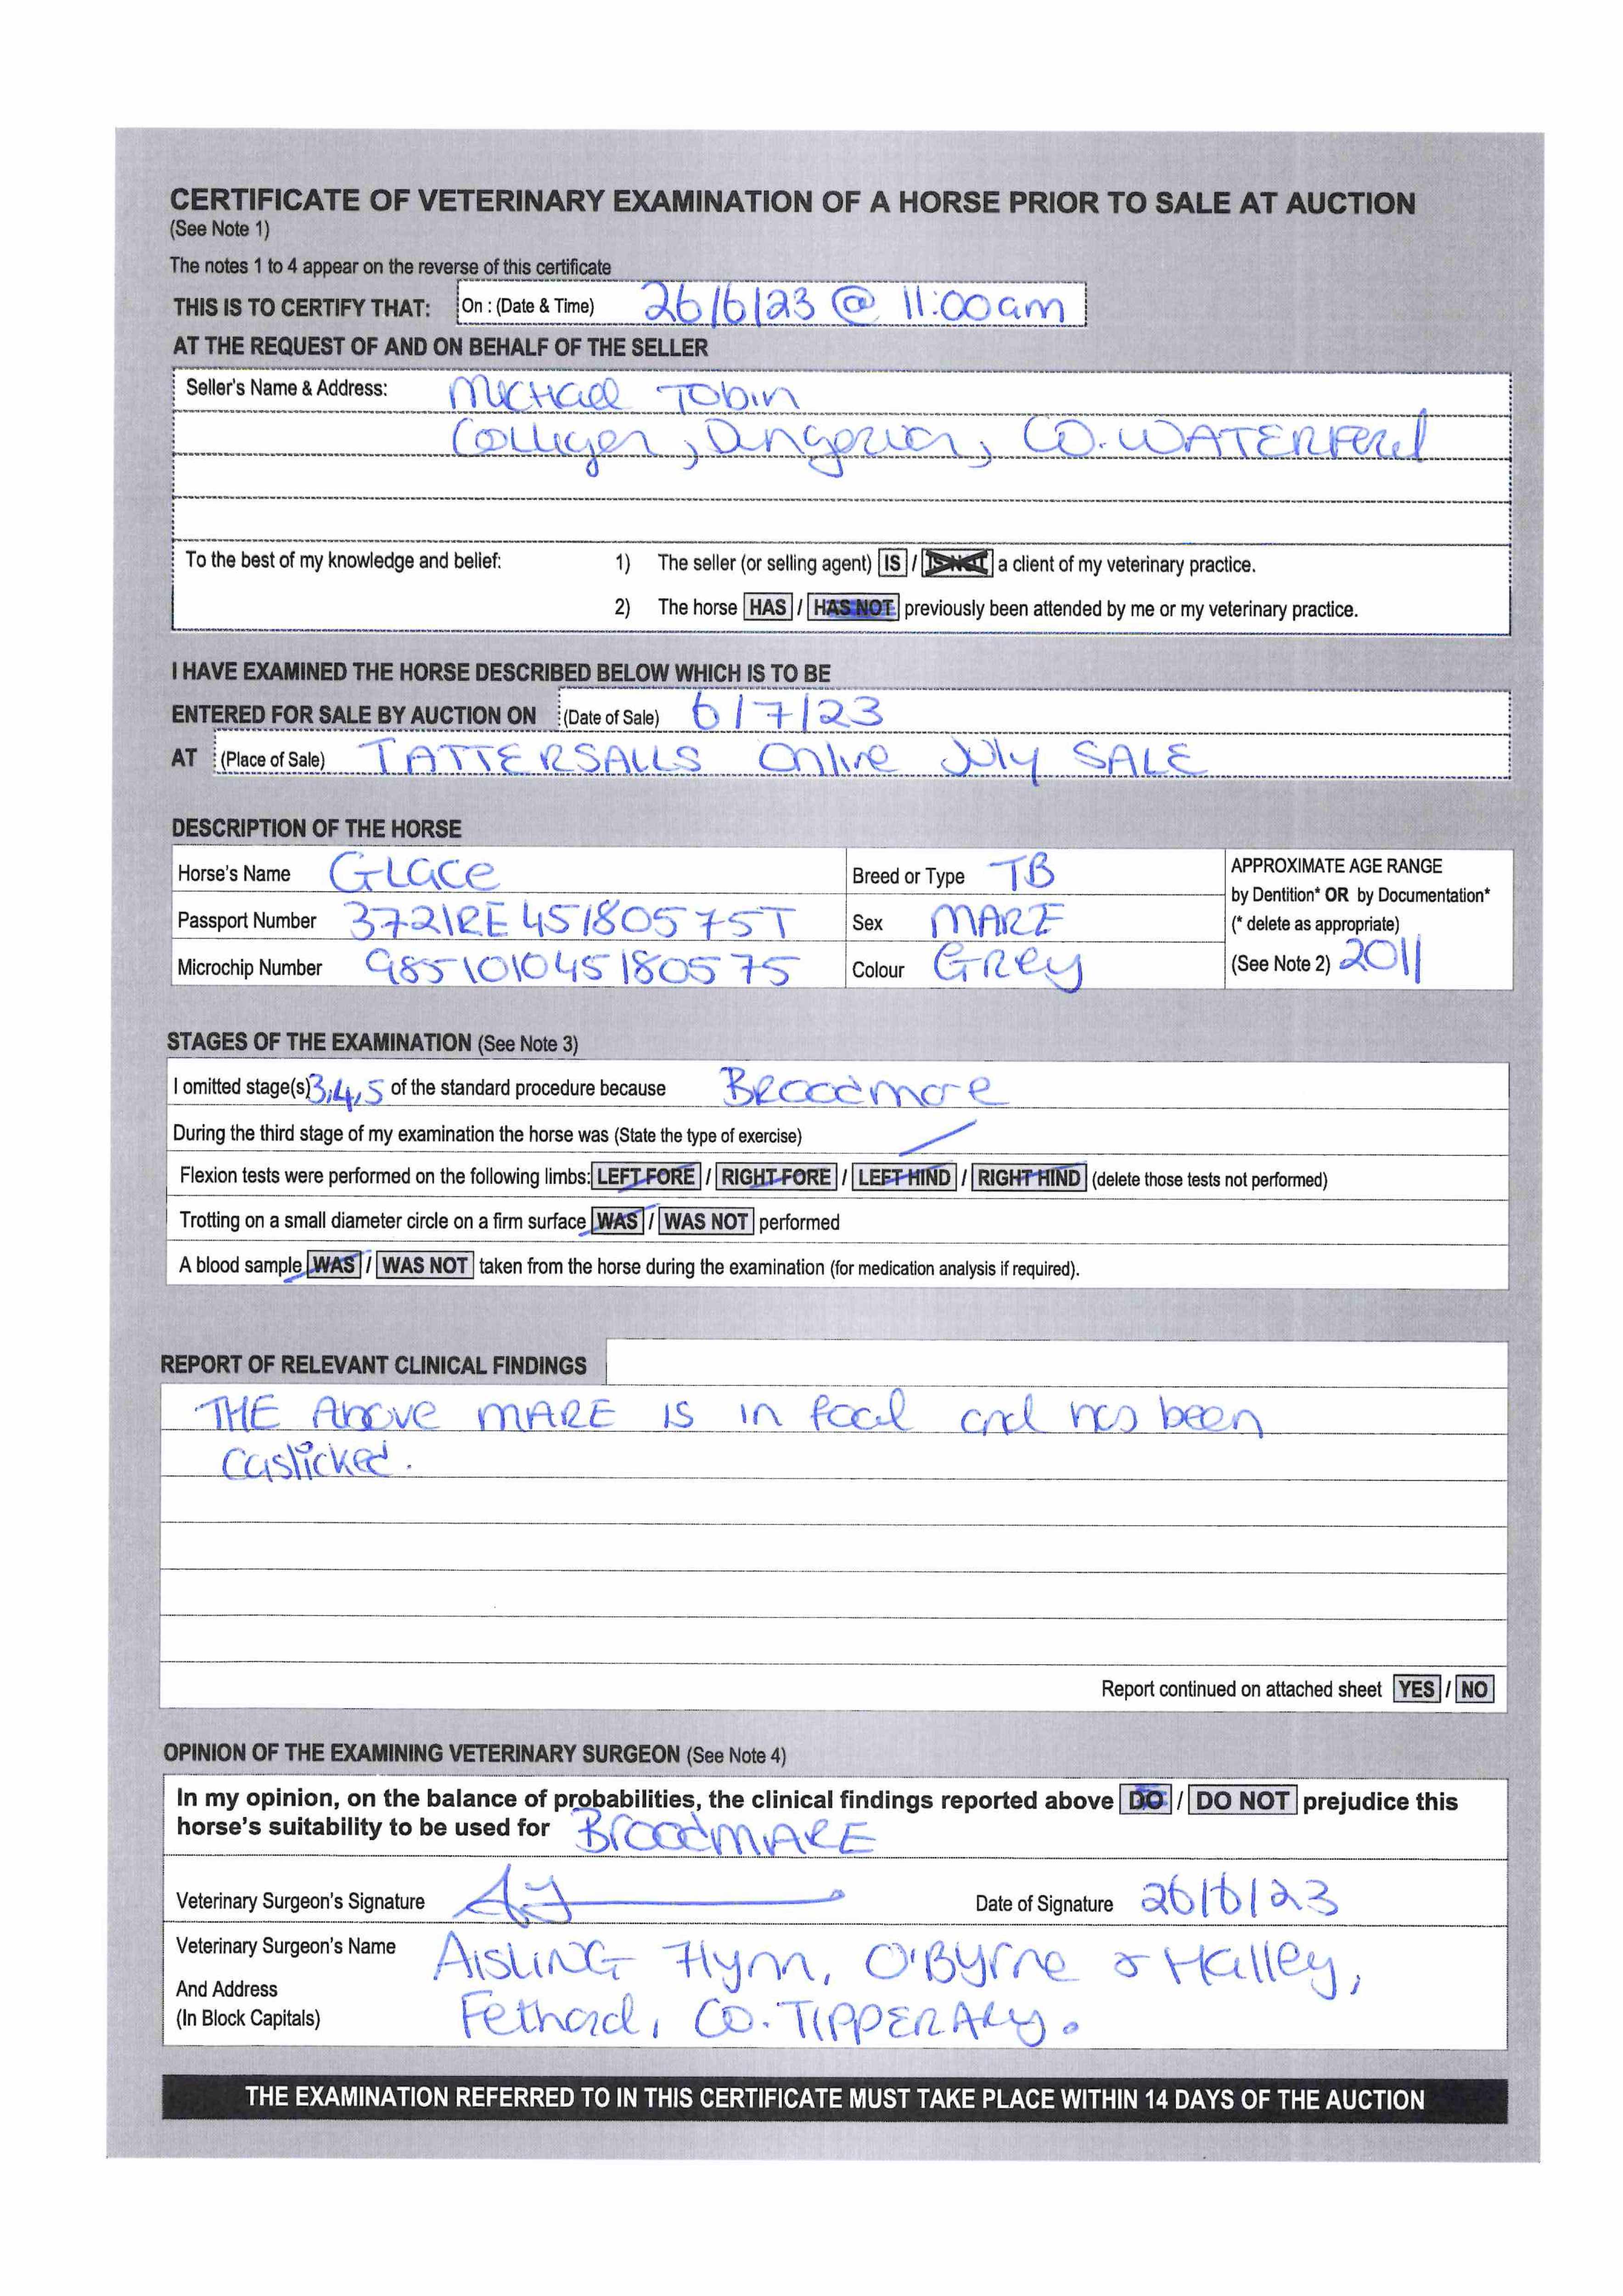 CERTIFICATE OF VETERINARY EXAMINATION OF A HORSE PRIOR TO SALE AT AUCTION
(See Note 1)
The notes 1 to 4 appear on the reverse of this certificate
THIS IS TO CERTIFY THAT: On : (Date & Time) 26/6/23 @ 11:00am
AT THE REQUEST OF AND ON BEHALF OF THE SELLER
Seller's Name & Address: Michael Tobin
Colligan, Dungarvan, CO. WATERFORD
To the best of my knowledge and belief: 1) The seller (or selling agent) IS / IS NOT a client of my veterinary practice.
2) The horse HAS / HAS NOT previously been attended by me or my veterinary practice.
I HAVE EXAMINED THE HORSE DESCRIBED BELOW WHICH IS TO BE
ENTERED FOR SALE BY AUCTION ON (Date of Sale) 6/7/23
AT (Place of Sale) TATTERSALLS Online July SALE
DESCRIPTION OF THE HORSE
Horse's Name Glace Breed or Type TB APPROXIMATE AGE RANGE
by Dentition* OR by Documentation*
Passport Number 372IRE45180575T Sex MARE (* delete as appropriate)
Microchip Number 985101045180575 Colour Grey (See Note 2) 2011
STAGES OF THE EXAMINATION (See Note 3)
I omitted stage(s) 3,4,5 of the standard procedure because Broodmare
During the third stage of my examination the horse was (State the type of exercise)
Flexion tests were performed on the following limbs: LEFT FORE / RIGHT FORE / LEFT HIND / RIGHT HIND (delete those tests not performed)
Trotting on a small diameter circle on a firm surface WAS / WAS NOT performed
A blood sample WAS / WAS NOT taken from the horse during the examination (for medication analysis if required).
REPORT OF RELEVANT CLINICAL FINDINGS
THE Above MARE IS in foal and has been
Caslicked.
Report continued on attached sheet YES / NO
OPINION OF THE EXAMINING VETERINARY SURGEON (See Note 4)
In my opinion, on the balance of probabilities, the clinical findings reported above DO / DO NOT prejudice this
horse's suitability to be used for BroodMARE
Veterinary Surgeon's Signature Date of Signature 26/6/23
Veterinary Surgeon's Name AISLING Flynn, O'Byrne & Halley,
And Address
(In Block Capitals) Fethard, CO. TIPPERARY.
THE EXAMINATION REFERRED TO IN THIS CERTIFICATE MUST TAKE PLACE WITHIN 14 DAYS OF THE AUCTION